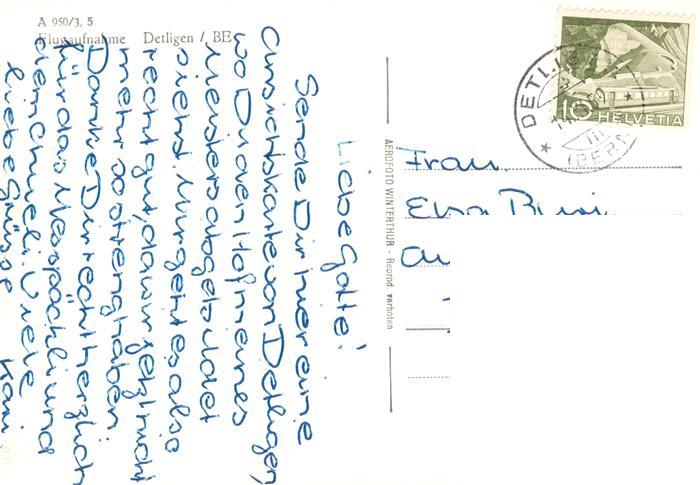 A 950/3, 5
Flugaufnahme Detligen / BE
Liebe Gotte!
Sende Dir hier eine
Ansichtskarte von Detligen,
wo Du den Hof meines
Meisters abgebildet
siehst. Mir geht es also
recht gut, da wir jetzt nicht
mehr so streng haben.
Danke Dir recht herzlich
für das Fresspäckli und
dem Chueli. Viele
liebe Grüsse
AEROFOTO WINTERTHUR - Reprod. verboten
HELVETIA
10
DETLIGEN
(BERN)
Frau
Elsa